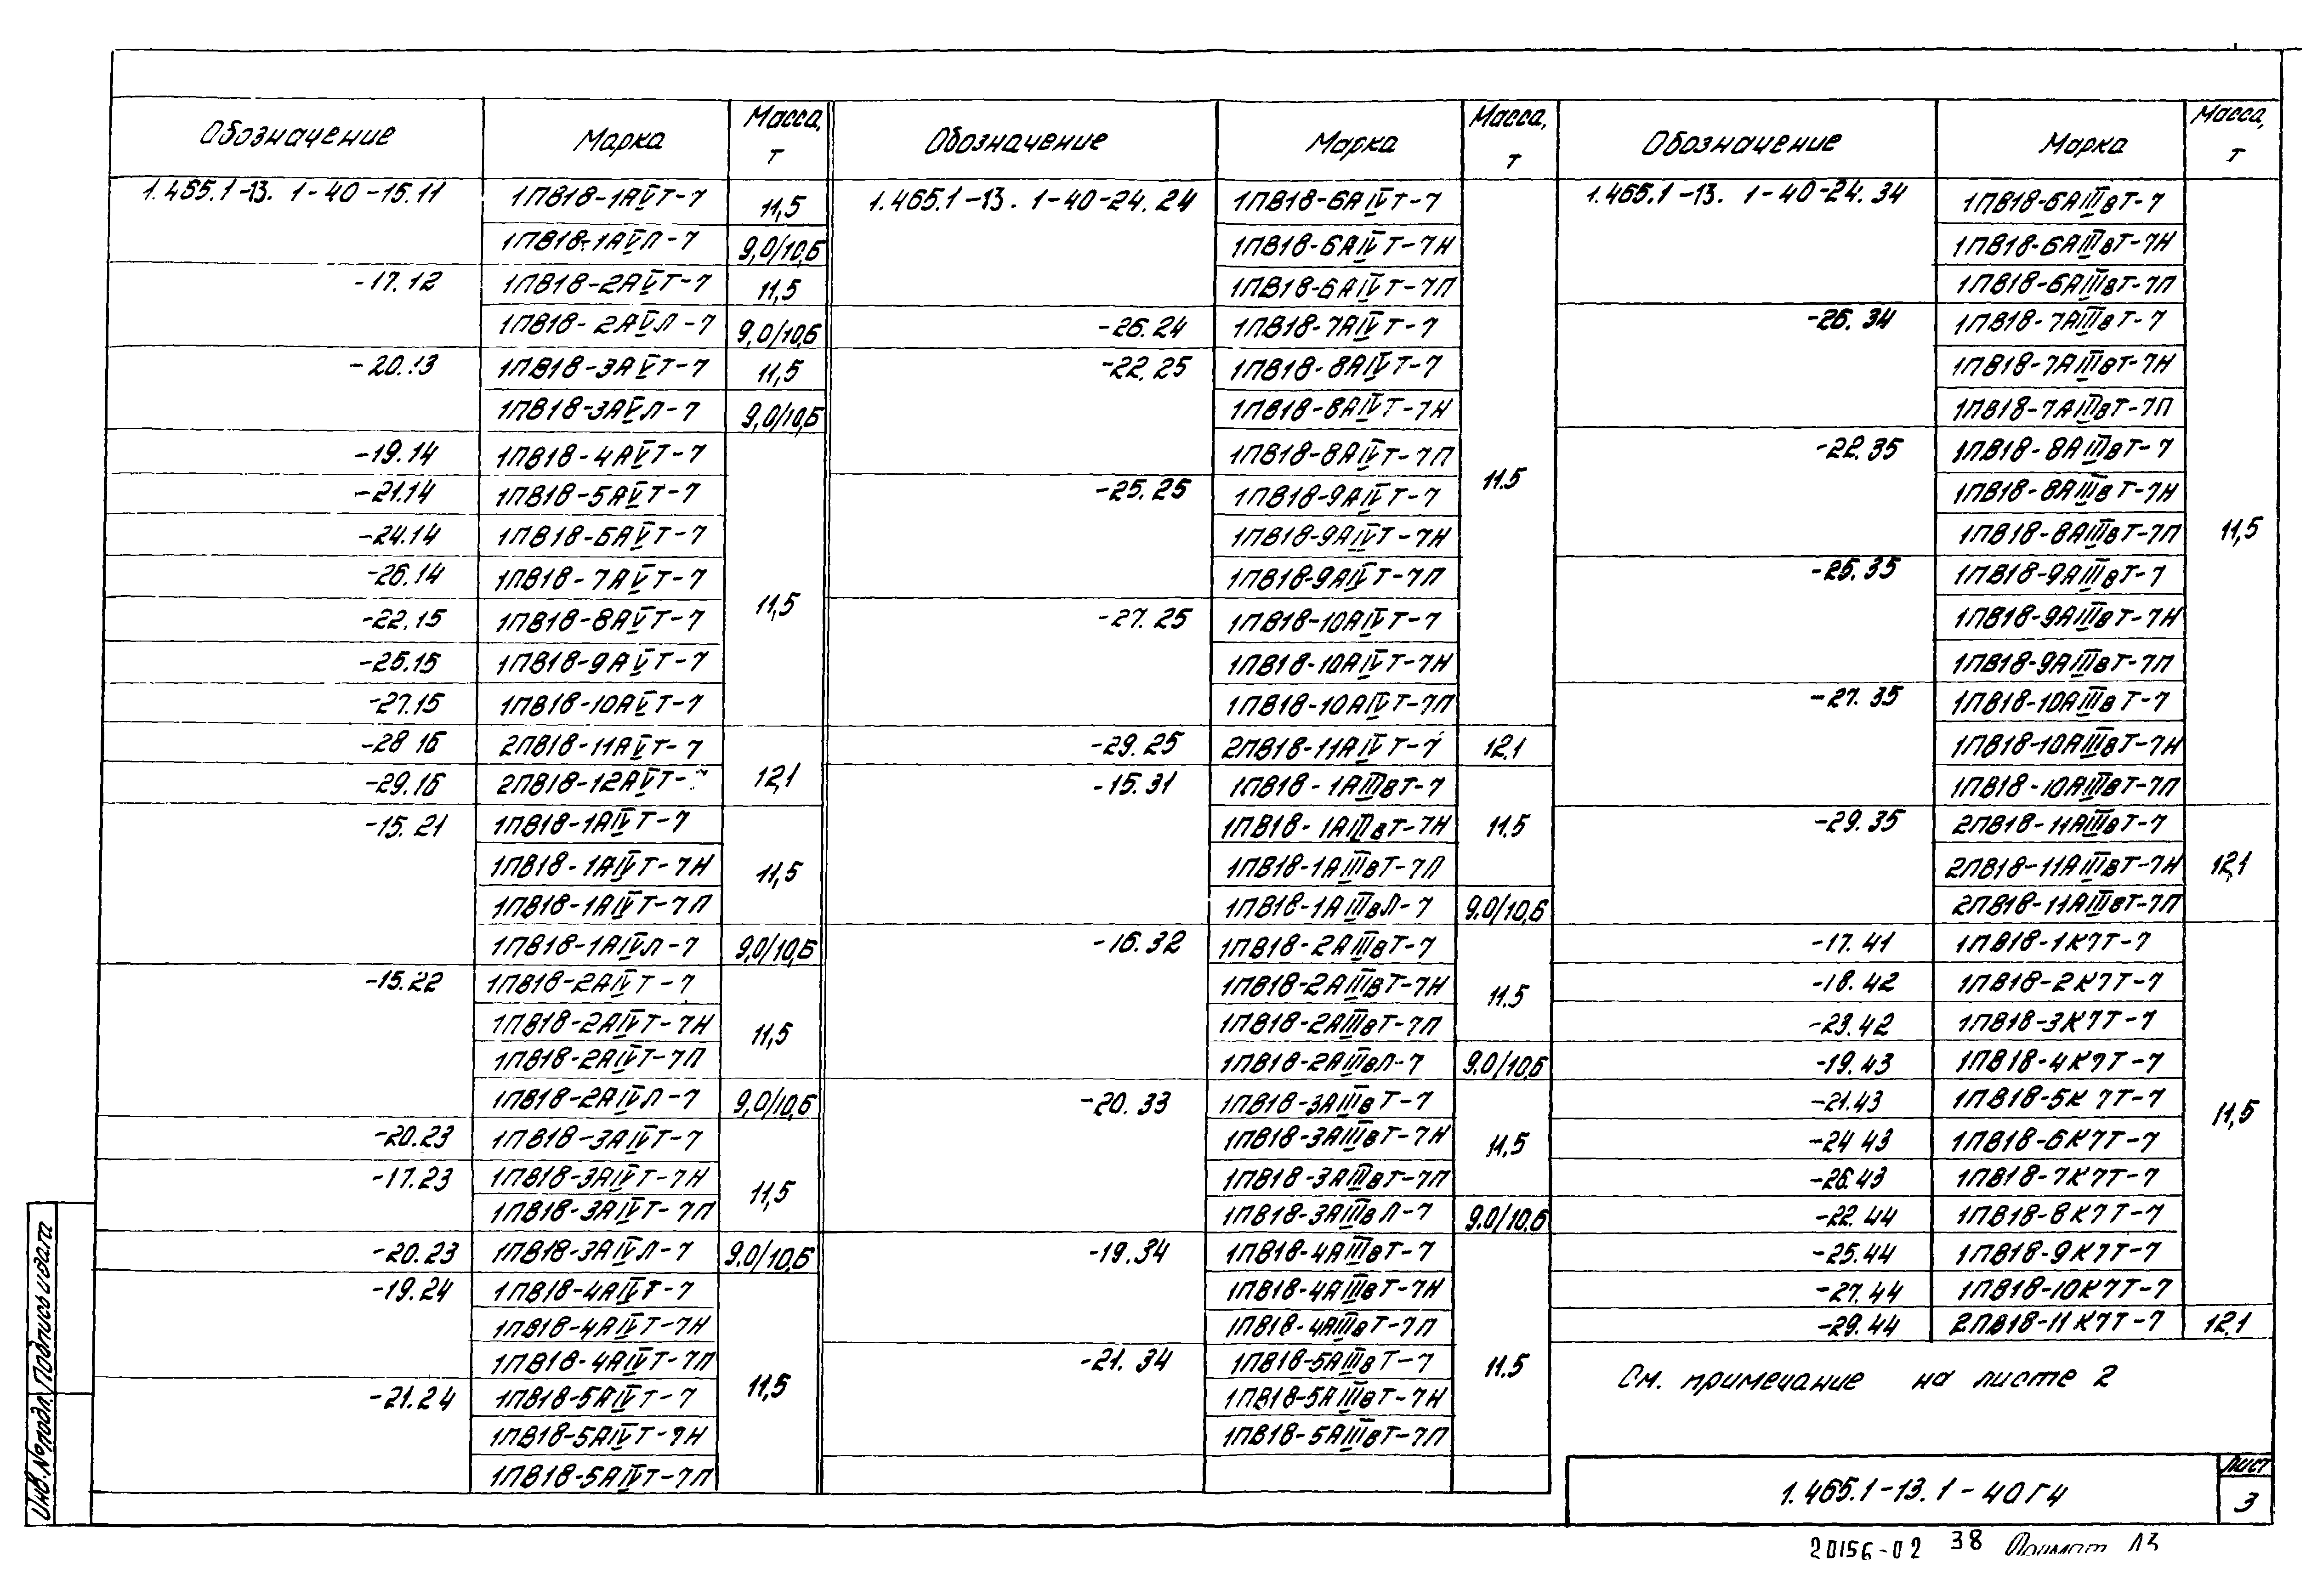 Обозначение Марка Масса, т
1.465.1-13. 1-40-15.11 1ПВ18-1АⅤТ-7 11,5
1ПВ18-1АⅤЛ-7 9,0/10,6
-17.12 1ПВ18-2АⅤТ-7 11,5
1ПВ18-2АⅤЛ-7 9,0/10,6
-20.13 1ПВ18-3АⅤТ-7 11,5
1ПВ18-3АⅤЛ-7 9,0/10,6
-19.14 1ПВ18-4АⅤТ-7
-21.14 1ПВ18-5АⅤТ-7
-24.14 1ПВ18-6АⅤТ-7
-26.14 1ПВ18-7АⅤТ-7
11,5
-22.15 1ПВ18-8АⅤТ-7
-25.15 1ПВ18-9АⅤТ-7
-27.15 1ПВ18-10АⅤТ-7
-28 16 2ПВ18-11АⅤТ-7
-29.16 2ПВ18-12АⅤТ- 12,1
-15.21 1ПВ18-1АⅣТ-7
1ПВ18-1АⅣТ-7Н 11,5
1ПВ18-1АⅣТ-7П
1ПВ18-1АⅣЛ-7 9,0/10,6
-15.22 1ПВ18-2АⅣТ-7
1ПВ18-2АⅣТ-7Н 11,5
1ПВ18-2АⅣТ-7П
1ПВ18-2АⅣЛ-7 9,0/10,6
-20.23 1ПВ18-3АⅣТ-7
-17.23 1ПВ18-3АⅣТ-7Н 11,5
1ПВ18-3АⅣТ-7П
-20.23 1ПВ18-3АⅣЛ-7 9,0/10,6
-19.24 1ПВ18-4АⅣТ-7
1ПВ18-4АⅣТ-7Н
1ПВ18-4АⅣТ-7П
11,5
-21.24 1ПВ18-5АⅣТ-7
1ПВ18-5АⅣТ-7Н
1ПВ18-5АⅣТ-7П
Обозначение Марка Масса, т
1.465.1-13. 1-40-24.24 1ПВ18-6АⅣТ-7
1ПВ18-6АⅣТ-7Н
1ПВ18-6АⅣТ-7П
-26.24 1ПВ18-7АⅣТ-7
-22.25 1ПВ18-8АⅣТ-7
1ПВ18-8АⅣТ-7Н
1ПВ18-8АⅣТ-7П
11.5
-25.25 1ПВ18-9АⅣТ-7
1ПВ18-9АⅣТ-7Н
1ПВ18-9АⅣТ-7П
-27.25 1ПВ18-10АⅣТ-7
1ПВ18-10АⅣТ-7Н
1ПВ18-10АⅣТ-7П
-29.25 2ПВ18-11АⅣТ-7 12,1
-15.31 1ПВ18-1АⅢвТ-7
1ПВ18-1АⅢвТ-7Н 11.5
1ПВ18-1АⅢвТ-7П
1ПВ18-1АⅢвЛ-7 9.0/10,6
-16.32 1ПВ18-2АⅢвТ-7
1ПВ18-2АⅢвТ-7Н 11.5
1ПВ18-2АⅢвТ-7П
1ПВ18-2АⅢвЛ-7 9.0/10,6
-20.33 1ПВ18-3АⅢвТ-7
1ПВ18-3АⅢвТ-7Н 11,5
1ПВ18-3АⅢвТ-7П
1ПВ18-3АⅢвЛ-7 9.0/10.6
-19.34 1ПВ18-4АⅢвТ-7
1ПВ18-4АⅢвТ-7Н
1ПВ18-4АⅢвТ-7П
-21.34 1ПВ18-5АⅢвТ-7 11.5
1ПВ18-5АⅢвТ-7Н
1ПВ18-5АⅢвТ-7П
Обозначение Марка Масса, т
1.465.1-13. 1-40-24.34 1ПВ18-6АⅢвТ-7
1ПВ18-6АⅢвТ-7Н
1ПВ18-6АⅢвТ-7П
-26.34 1ПВ18-7АⅢвТ-7
1ПВ18-7АⅢвТ-7Н
1ПВ18-7АⅢвТ-7П
-22.35 1ПВ18-8АⅢвТ-7
1ПВ18-8АⅢвТ-7Н
1ПВ18-8АⅢвТ-7П 11,5
-25.35 1ПВ18-9АⅢвТ-7
1ПВ18-9АⅢвТ-7Н
1ПВ18-9АⅢвТ-7П
-27.35 1ПВ18-10АⅢвТ-7
1ПВ18-10АⅢвТ-7Н
1ПВ18-10АⅢвТ-7П
-29.35 2ПВ18-11АⅢвТ-7
2ПВ18-11АⅢвТ-7Н 12,1
2ПВ18-11АⅢвТ-7П
-17.41 1ПВ18-1К7Т-7
-18.42 1ПВ18-2К7Т-7
-23.42 1ПВ18-3К7Т-7
-19.43 1ПВ18-4К7Т-7
-21.43 1ПВ18-5К7Т-7 11,5
-24 43 1ПВ18-6К7Т-7
-26.43 1ПВ18-7К7Т-7
-22.44 1ПВ18-8К7Т-7
-25.44 1ПВ18-9К7Т-7
-27.44 1ПВ18-10К7Т-7
-29.44 2ПВ18-11К7Т-7 12,1
См. примечание на листе 2
1.465.1-13.1-40Г4
Лист
3
Инв.№подл. Подпись и дата
20156-02 38 Формат А3